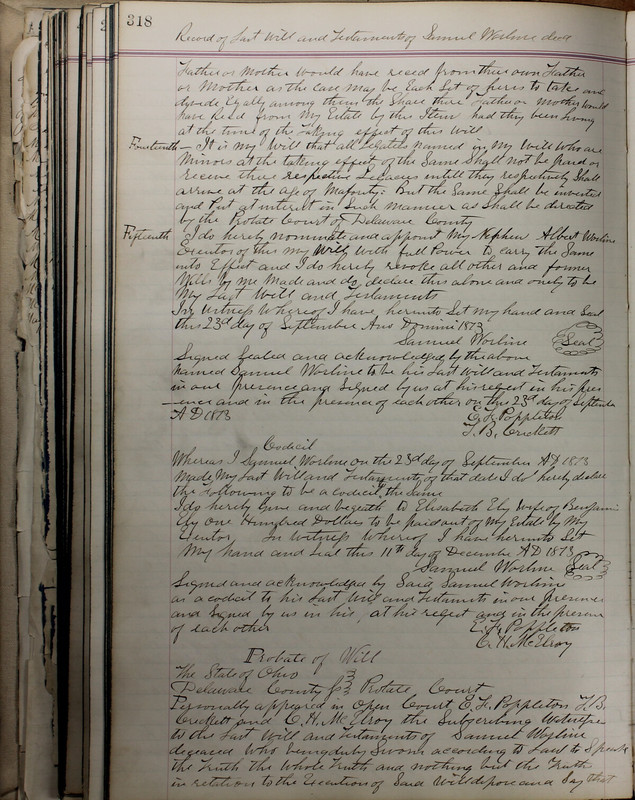 318
Record of Last Will and Testament of Samuel Worline decd
Father or Mother would have reced from their own Father
or Mother as the case may be Each Set of heirs to take and
divide Equally among them the Share their Father or Mother would
have Reced from My Estate by this Item had they been living
at the time of the taking effect of this Will
Fourteenth - It is my Will that all Legatees named in My Will who are
Minors at the taking effect of the Same Shall not be paid or
receive their respective Legacies untill they respectively Shall
arrive at the age of Majority: But the Same Shall be invested
and Put at interest in Such Manner as Shall be directed
by the Probate Court of Delaware County
Fifteenth I do hereby nominate and appoint My Nephew Albert Worline
Executor of this my Will, With full Power to carry the Same
into Effect and I do hereby revoke all other and former
Wills by me Made and do declare this alone and only to be
My Last Will and Testaments
In Witness Whereof I have hereunto Set my hand and Seal
this 23d day of September Ano Domini 1873
Samuel Worline Seal
Signed Sealed and acknowledged by the above
named Samuel Worline to be his Last Will and Testaments
in our presence and Signed by us at his request in his pres
-ence and in the presence of each other on this 23d day of September
AD 1873
E. F. Poppleton
T. B. Crickett
Codicil
Whereas I Samuel Worline on the 23d day of September AD 1873
Made My Last Will and Testaments, of that date I do hereby declare
the following to be a codicil to the Same
I do hereby Give and bequeath to Elisabeth Eby Wife of Benjamin
Eby One Hundred Dollars to be paid out of My Estate by My
Executor, In Witness Whereof I have hereunto Set
My hand and Seal this 11th day of December AD 1873
Samuel Worline Seal
Signed and acknowledged by Said Samuel Worline
as a codicil to his Last Will and Testaments in our presence
and Signed by us in his, at his request and in the presence
of each other
E. F. Poppleton
C. H. McElroy
Probate of Will
The State of Ohio
Delaware County ss Probate Court
Personally appeared in Open Court, E. F. Poppleton T. B.
Crickett and C. H. McElroy the Subscribing Witnesses
to the Last Will and Testaments of Samuel Worline
deceased Who being duly Sworn according to Law to Speak
the Truth the Whole Truth and nothing but the Truth
in relation to the Execution of Said Will depose and Say that